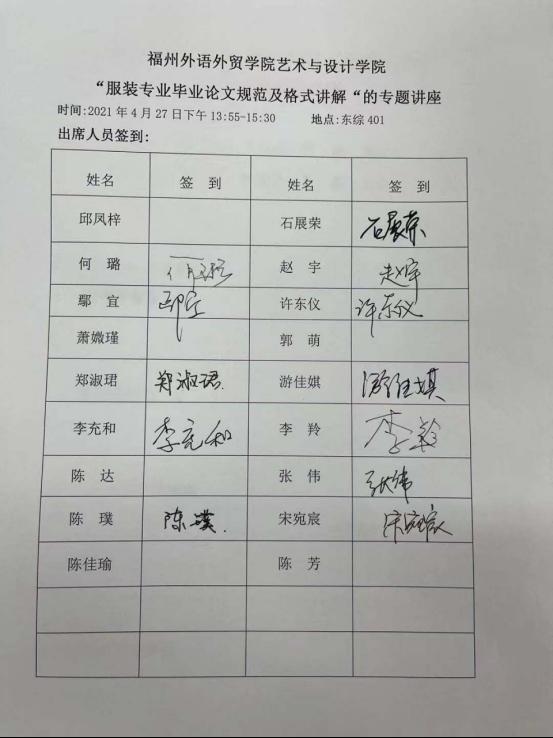 福州外语外贸学院艺术与设计学院
“服装专业毕业论文规范及格式讲解“的专题讲座
时间:2021年4月27日下午13:55-15:30 地点:东综401
出席人员签到:
姓名 签 到 姓名 签 到
邱凤梓 石展荣 石展荣
何 璐 何璐 赵 宇 赵宇
鄢 宜 鄢宜 许东仪 许东仪
萧媺瑾 郭 萌
郑淑珺 郑淑珺 游佳娸 游佳娸
李充和 李充和 李 羚 李羚
陈 达 张 伟 张伟
陈 璞 陈璞 宋宛宸 宋宛宸
陈佳瑜 陈 芳